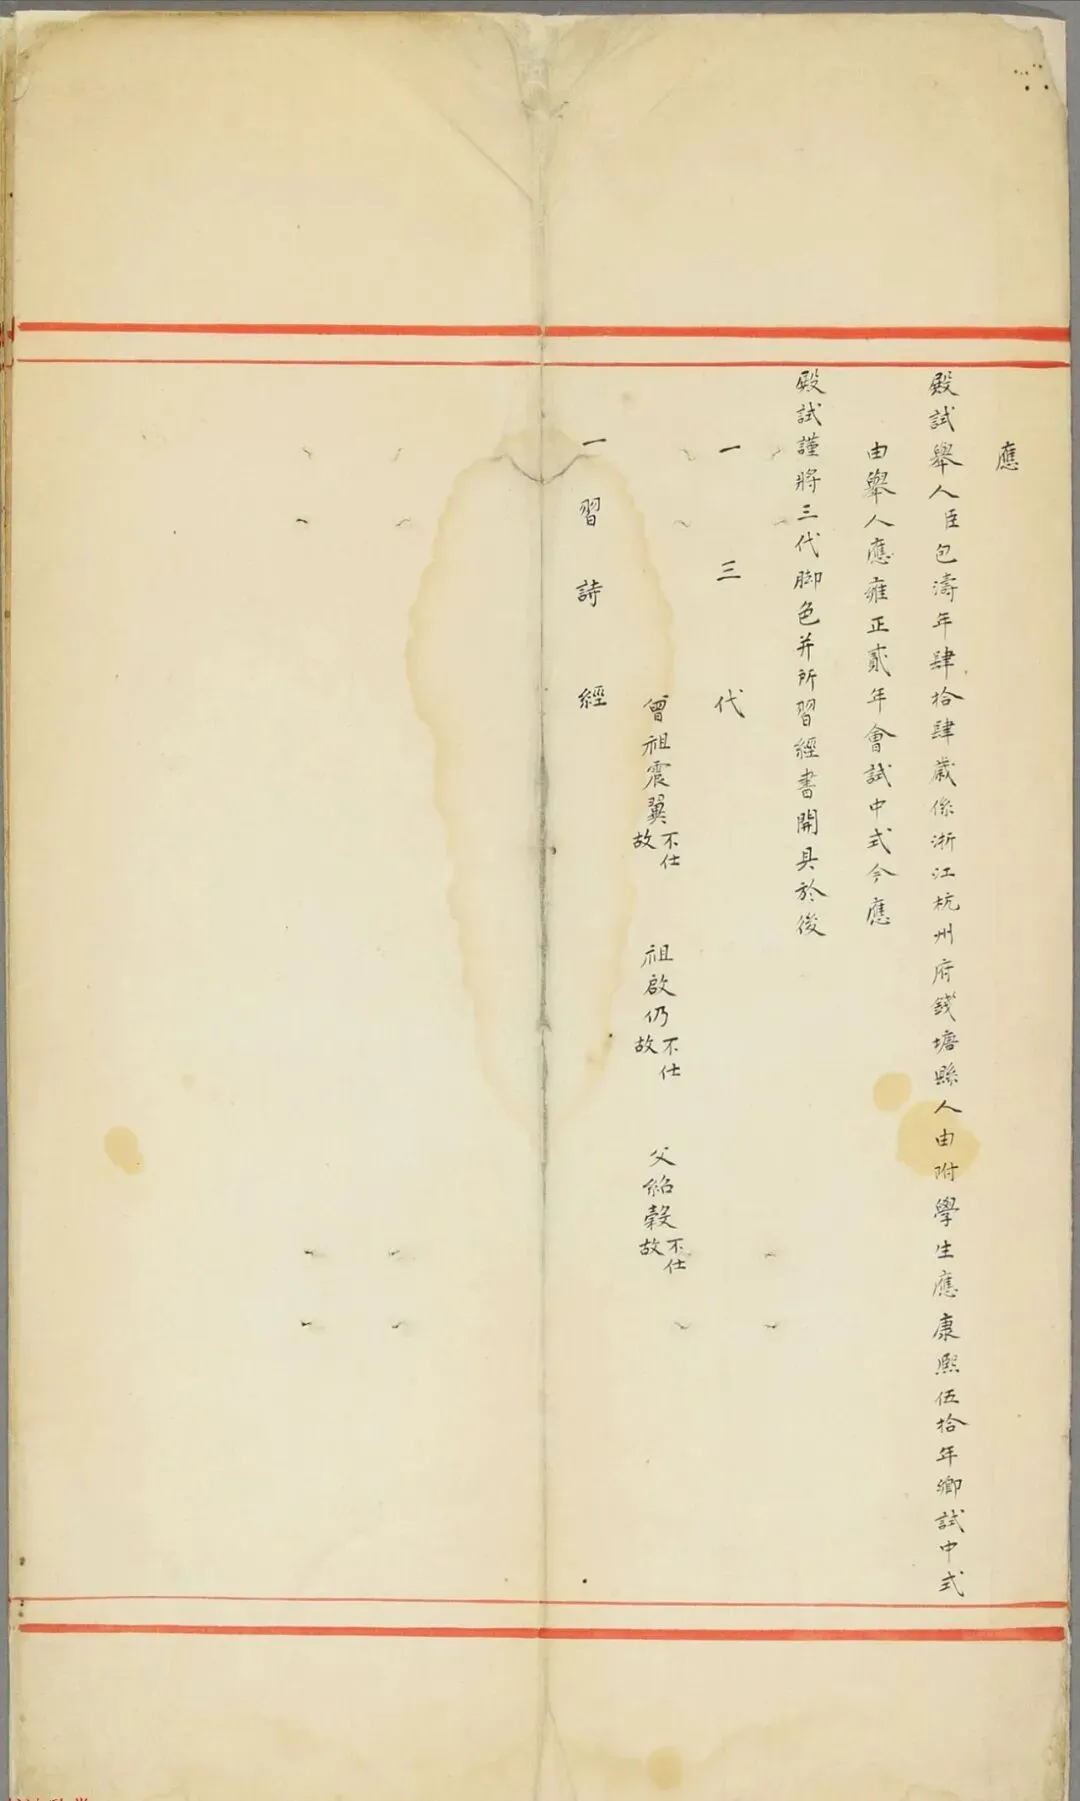 應
殿試舉人臣包濤年肆拾肆歲係浙江杭州府錢塘縣人由附學生應康熙伍拾年鄉試中式
由舉人應雍正貳年會試中式今應
殿試謹將三代脚色并所習經書開具於後
一三代
曾祖震翼不仕故 祖啟仍不仕故 父紹榖不仕故
一習詩經